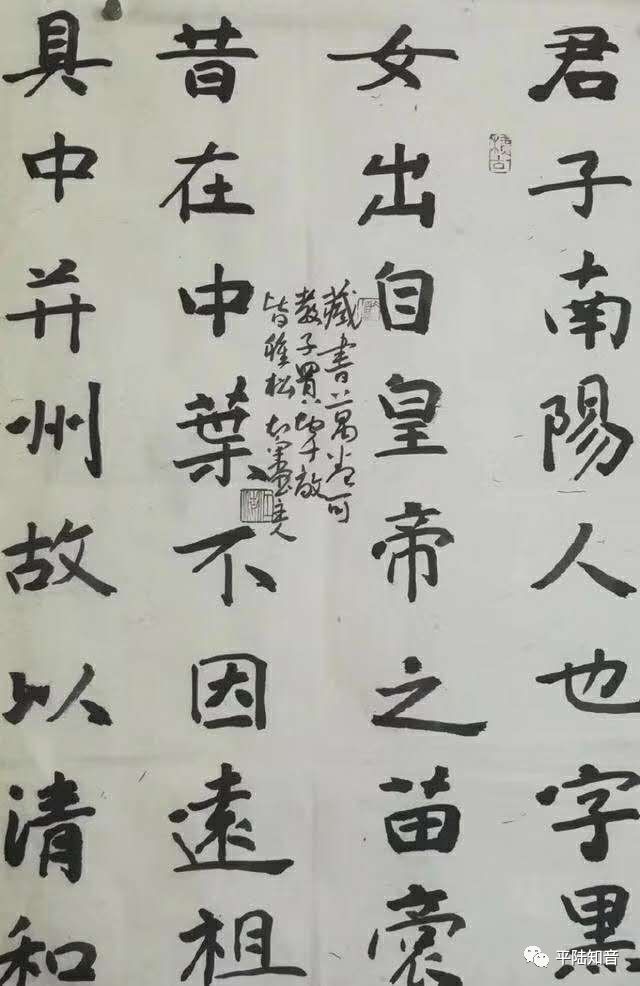 君子南陽人也字黑
女出自皇帝之苗裔
昔在中葉不因遠祖
具中并州故以清和
藏書萬卷可
教子買
皆種松
平陆知音